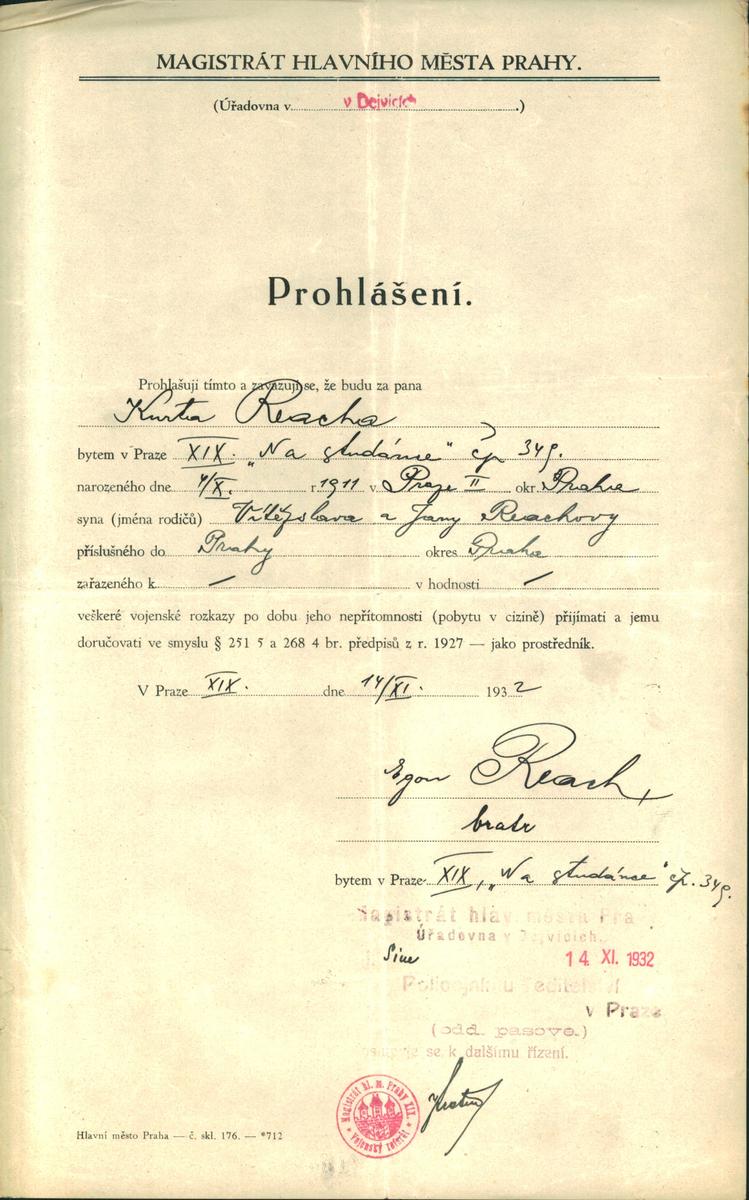 MAGISTRÁT HLAVNÍHO MĚSTA PRAHY.
(Úřadovna v v Dejvicích .)
Prohlášení.
Prohlašuji tímto a zavazuji se, že budu za pana
Kurta Reacha
bytem v Praze XIX. "Na studánce" čp 349.
narozeného dne 4/X. r. 1911 v Praze II okr. Praha
syna (jména rodičů) Vítězslava a Jany Reachovy
příslušného do Prahy okres Praha
zařazeného k — v hodnosti —
veškeré vojenské rozkazy po dobu jeho nepřítomnosti (pobytu v cizině) přijímati a jemu
doručovati ve smyslu § 251 5 a 268 4 br. předpisů z r. 1927 — jako prostředník.
V Praze XIX. dne 14/XI. 1932
Egon Reach
bratr
bytem v Praze XIX, "Na studánce" čp. 349.
Magistrát hlav. města Pra
Úřadovna v Dejvicích.
14. XI. 1932
Policejnímu ředitelství
v Praze
(odd. pasové.)
se k dalšímu řízení.
Magistrát hl. m. Prahy XIX.
Vojenský referát
Hlavní město Praha — č. skl. 176. — *712